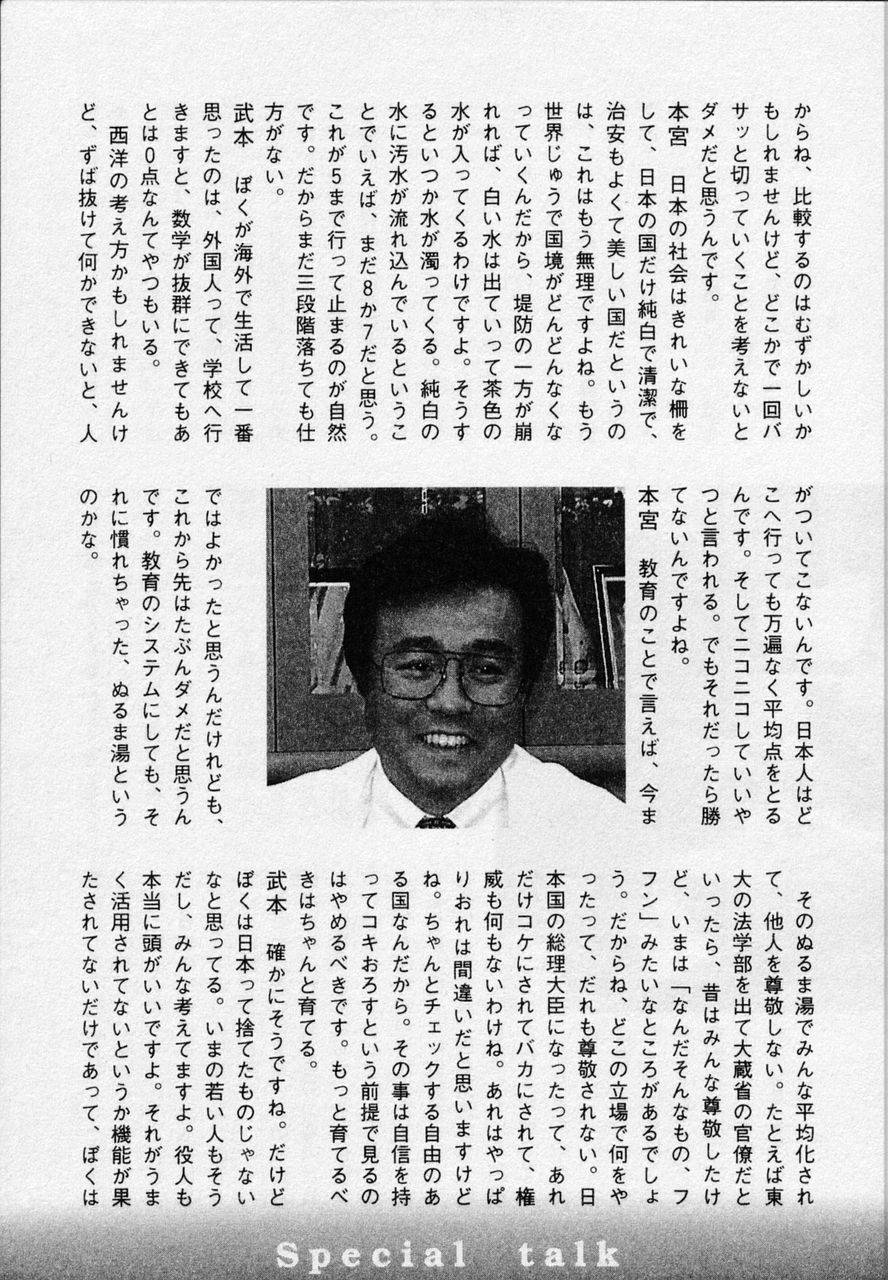 からね、比較するのはむずかしいか
もしれませんけど、どこかで一回バ
サッと切っていくことを考えないと
ダメだと思うんです。
本宮　日本の社会はきれいな柵を
して、日本の国だけ純白で清潔で、
治安もよくて美しい国だというの
は、これはもう無理ですよね。もう
世界じゅうで国境がどんどんなくな
っていくんだから、堤防の一方が崩
れれば、白い水は出ていって茶色の
水が入ってくるわけですよ。そうす
るといつか水が濁ってくる。純白の
水に汚水が流れ込んでいるというこ
とでいえば、まだ8か7だと思う。
これが5まで行って止まるのが自然
です。だからまだ三段階落ちても仕
方がない。
武本　ぼくが海外で生活して一番
思ったのは、外国人って、学校へ行
きますと、数学が抜群にできてもあ
とは0点なんてやつもいる。
　西洋の考え方かもしれませんけ
ど、ずば抜けて何かできないと、人
がついてこないんです。日本人はど
こへ行っても万遍なく平均点をとる
んです。そしてニコニコしていいや
つと言われる。でもそれだったら勝
てないんですよね。
本宮　教育のことで言えば、今ま
ではよかったと思うんだけれども、
これから先はたぶんダメだと思うん
です。教育のシステムにしても、そ
れに慣れちゃった、ぬるま湯という
のかな。
　そのぬるま湯でみんな平均化され
て、他人を尊敬しない。たとえば東
大の法学部を出て大蔵省の官僚だと
いったら、昔はみんな尊敬したけ
ど、いまは「なんだそんなもの、フ
フン」みたいなところがあるでしょ
う。だからね、どこの立場で何をや
ったって、だれも尊敬されない。日
本国の総理大臣になったって、あれ
だけコケにされてバカにされて、権
威も何もないわけね。あれはやっぱ
りおれは間違いだと思いますけど
ね。ちゃんとチェックする自由のあ
る国なんだから。その事は自信を持
ってコキおろすという前提で見るの
はやめるべきです。もっと育てるべ
きはちゃんと育てる。
武本　確かにそうですね。だけど
ぼくは日本って捨てたものじゃない
なと思ってる。いまの若い人もそう
だし、みんな考えてますよ。役人も
本当に頭がいいですよ。それがうま
く活用されてないというか機能が果
たされてないだけであって、ぼくは
Special talk